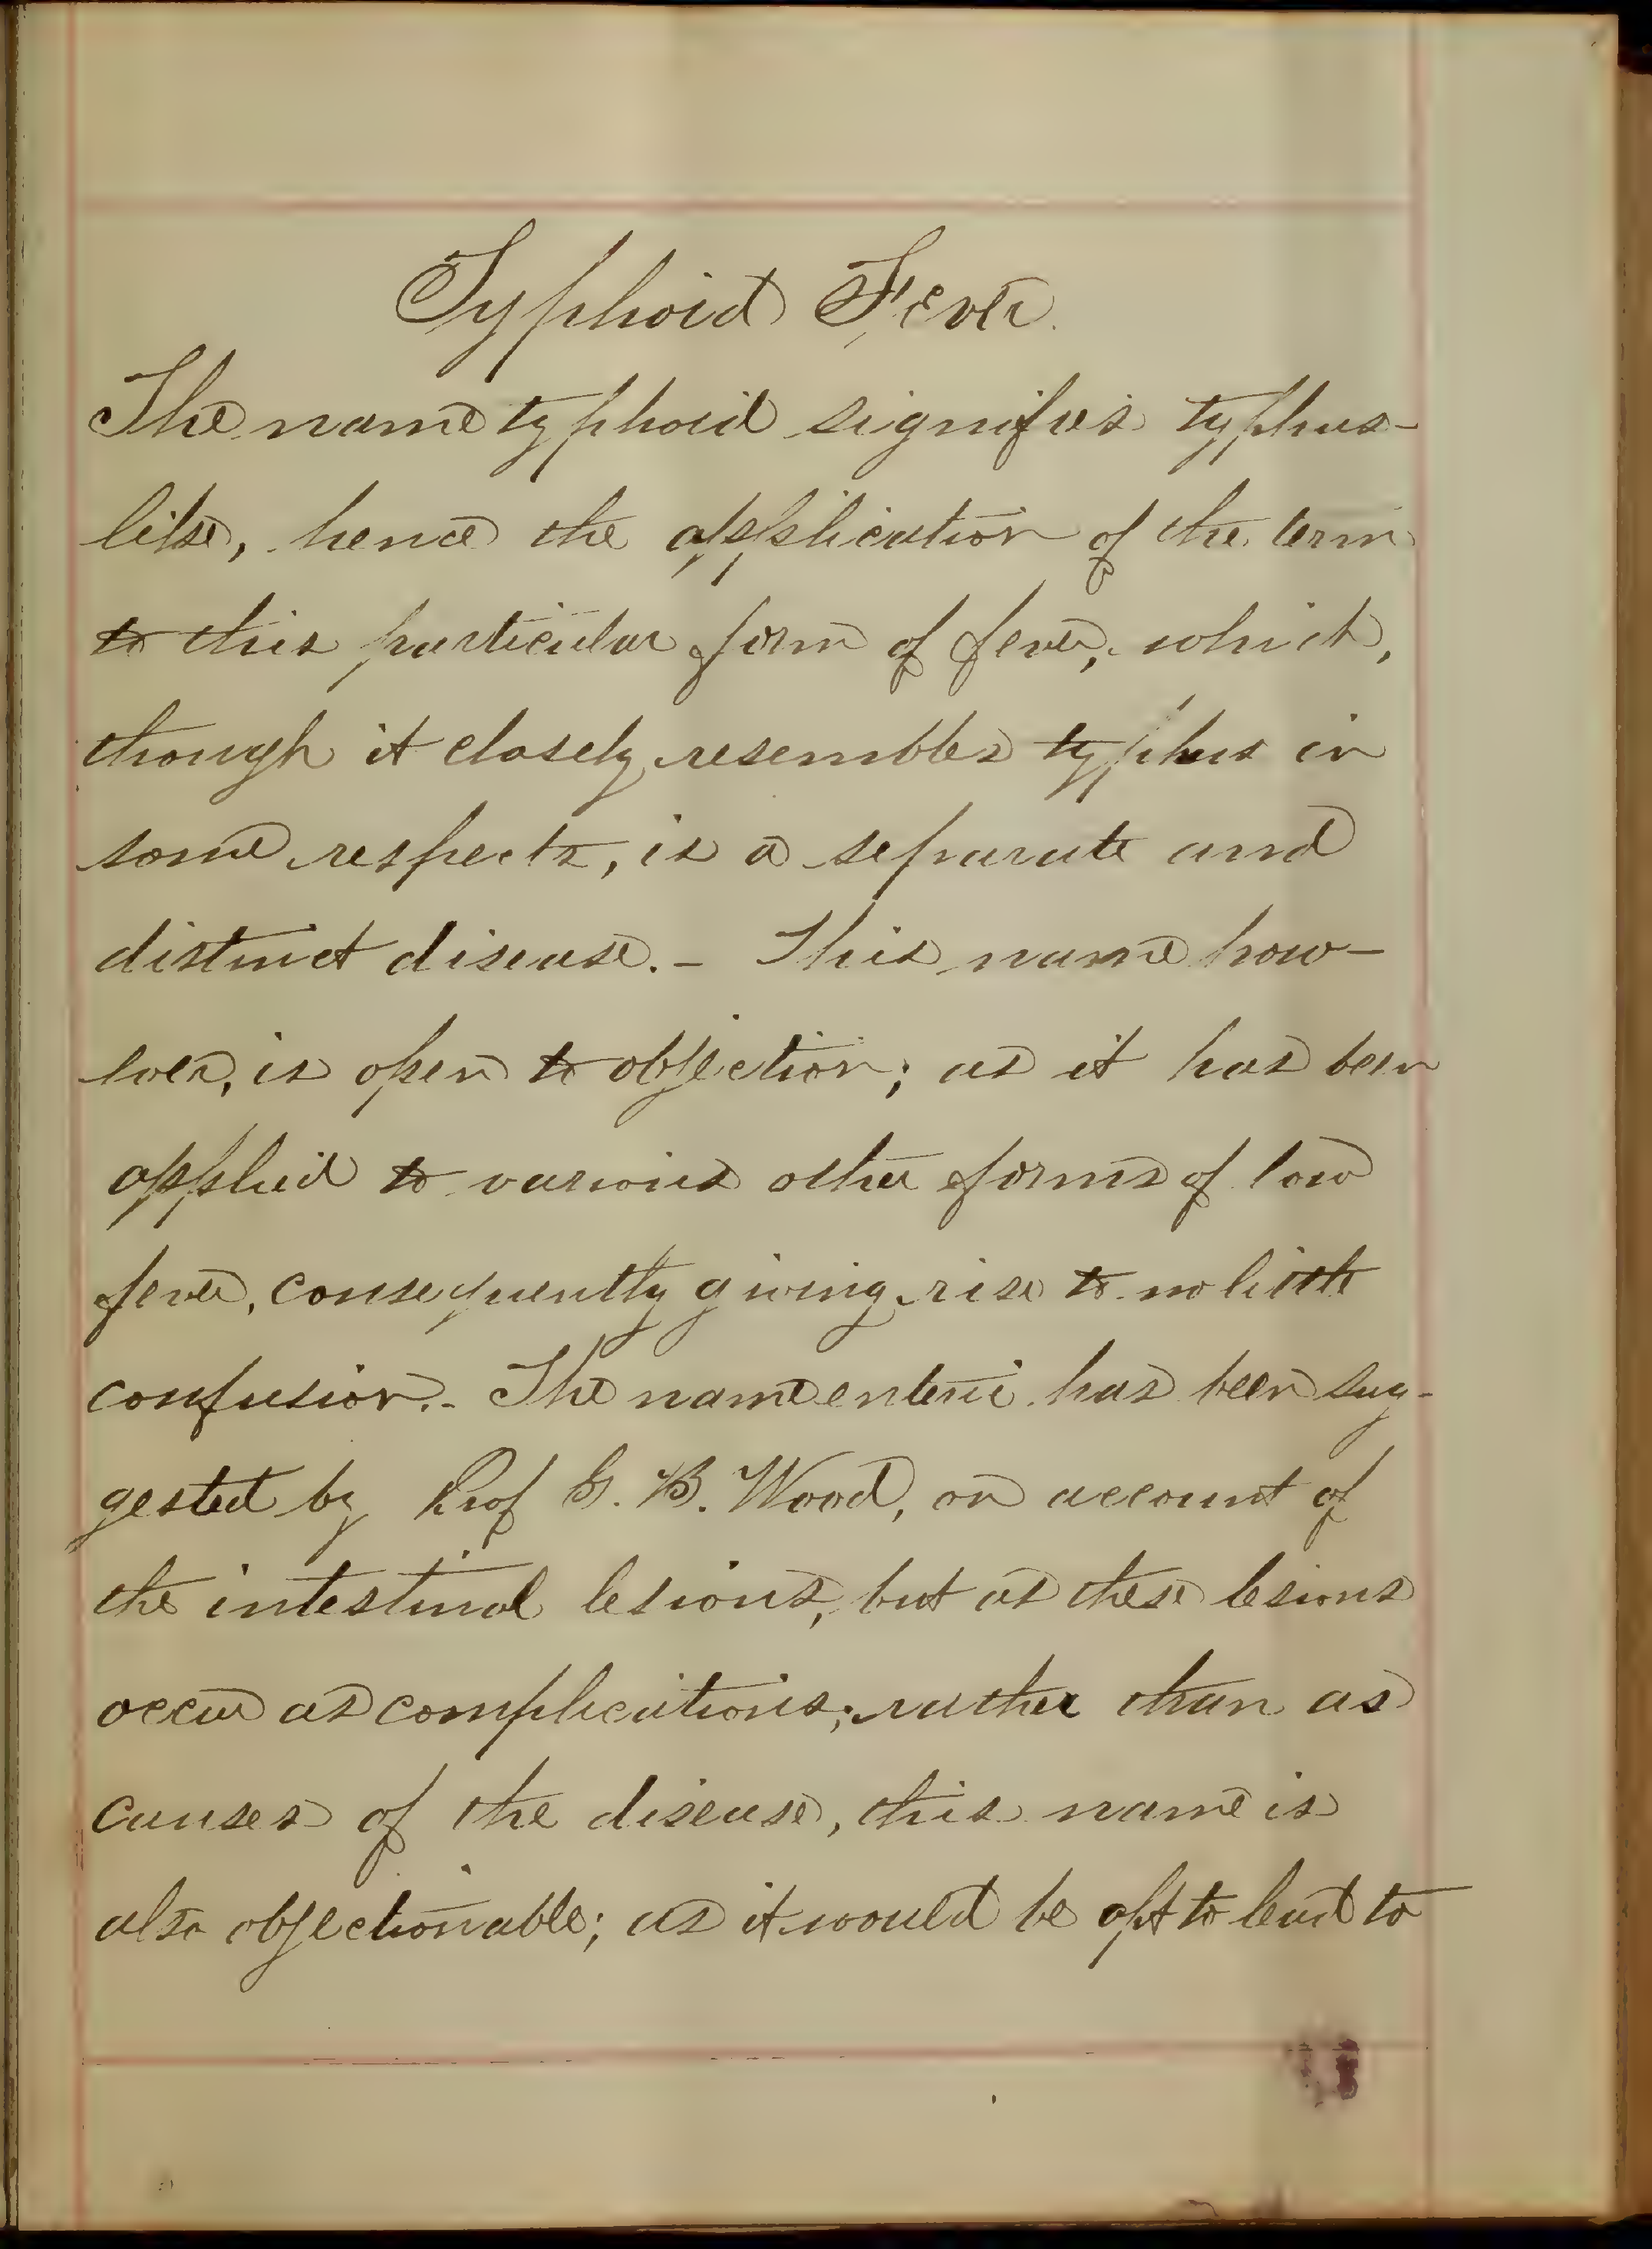 Typhoid Fever.
The name typhoid signifies typhus-
like, hence the application of the term
to this particular form of fever, which,
though it closely resembles typhus in
some respects, is a separate and
distinct disease. – This name how-
ever, is open to objection; as it has been
applied to various other forms of low
fever, consequently giving rise to no little
confusion. – The name enteric has been sug-
gested by Prof G. B. Wood, on account of
the intestinal lesions, but as these lesions
occur as complications; rather than as
causes of the disease, this name is
also objectionable; as it would be apt to lead to